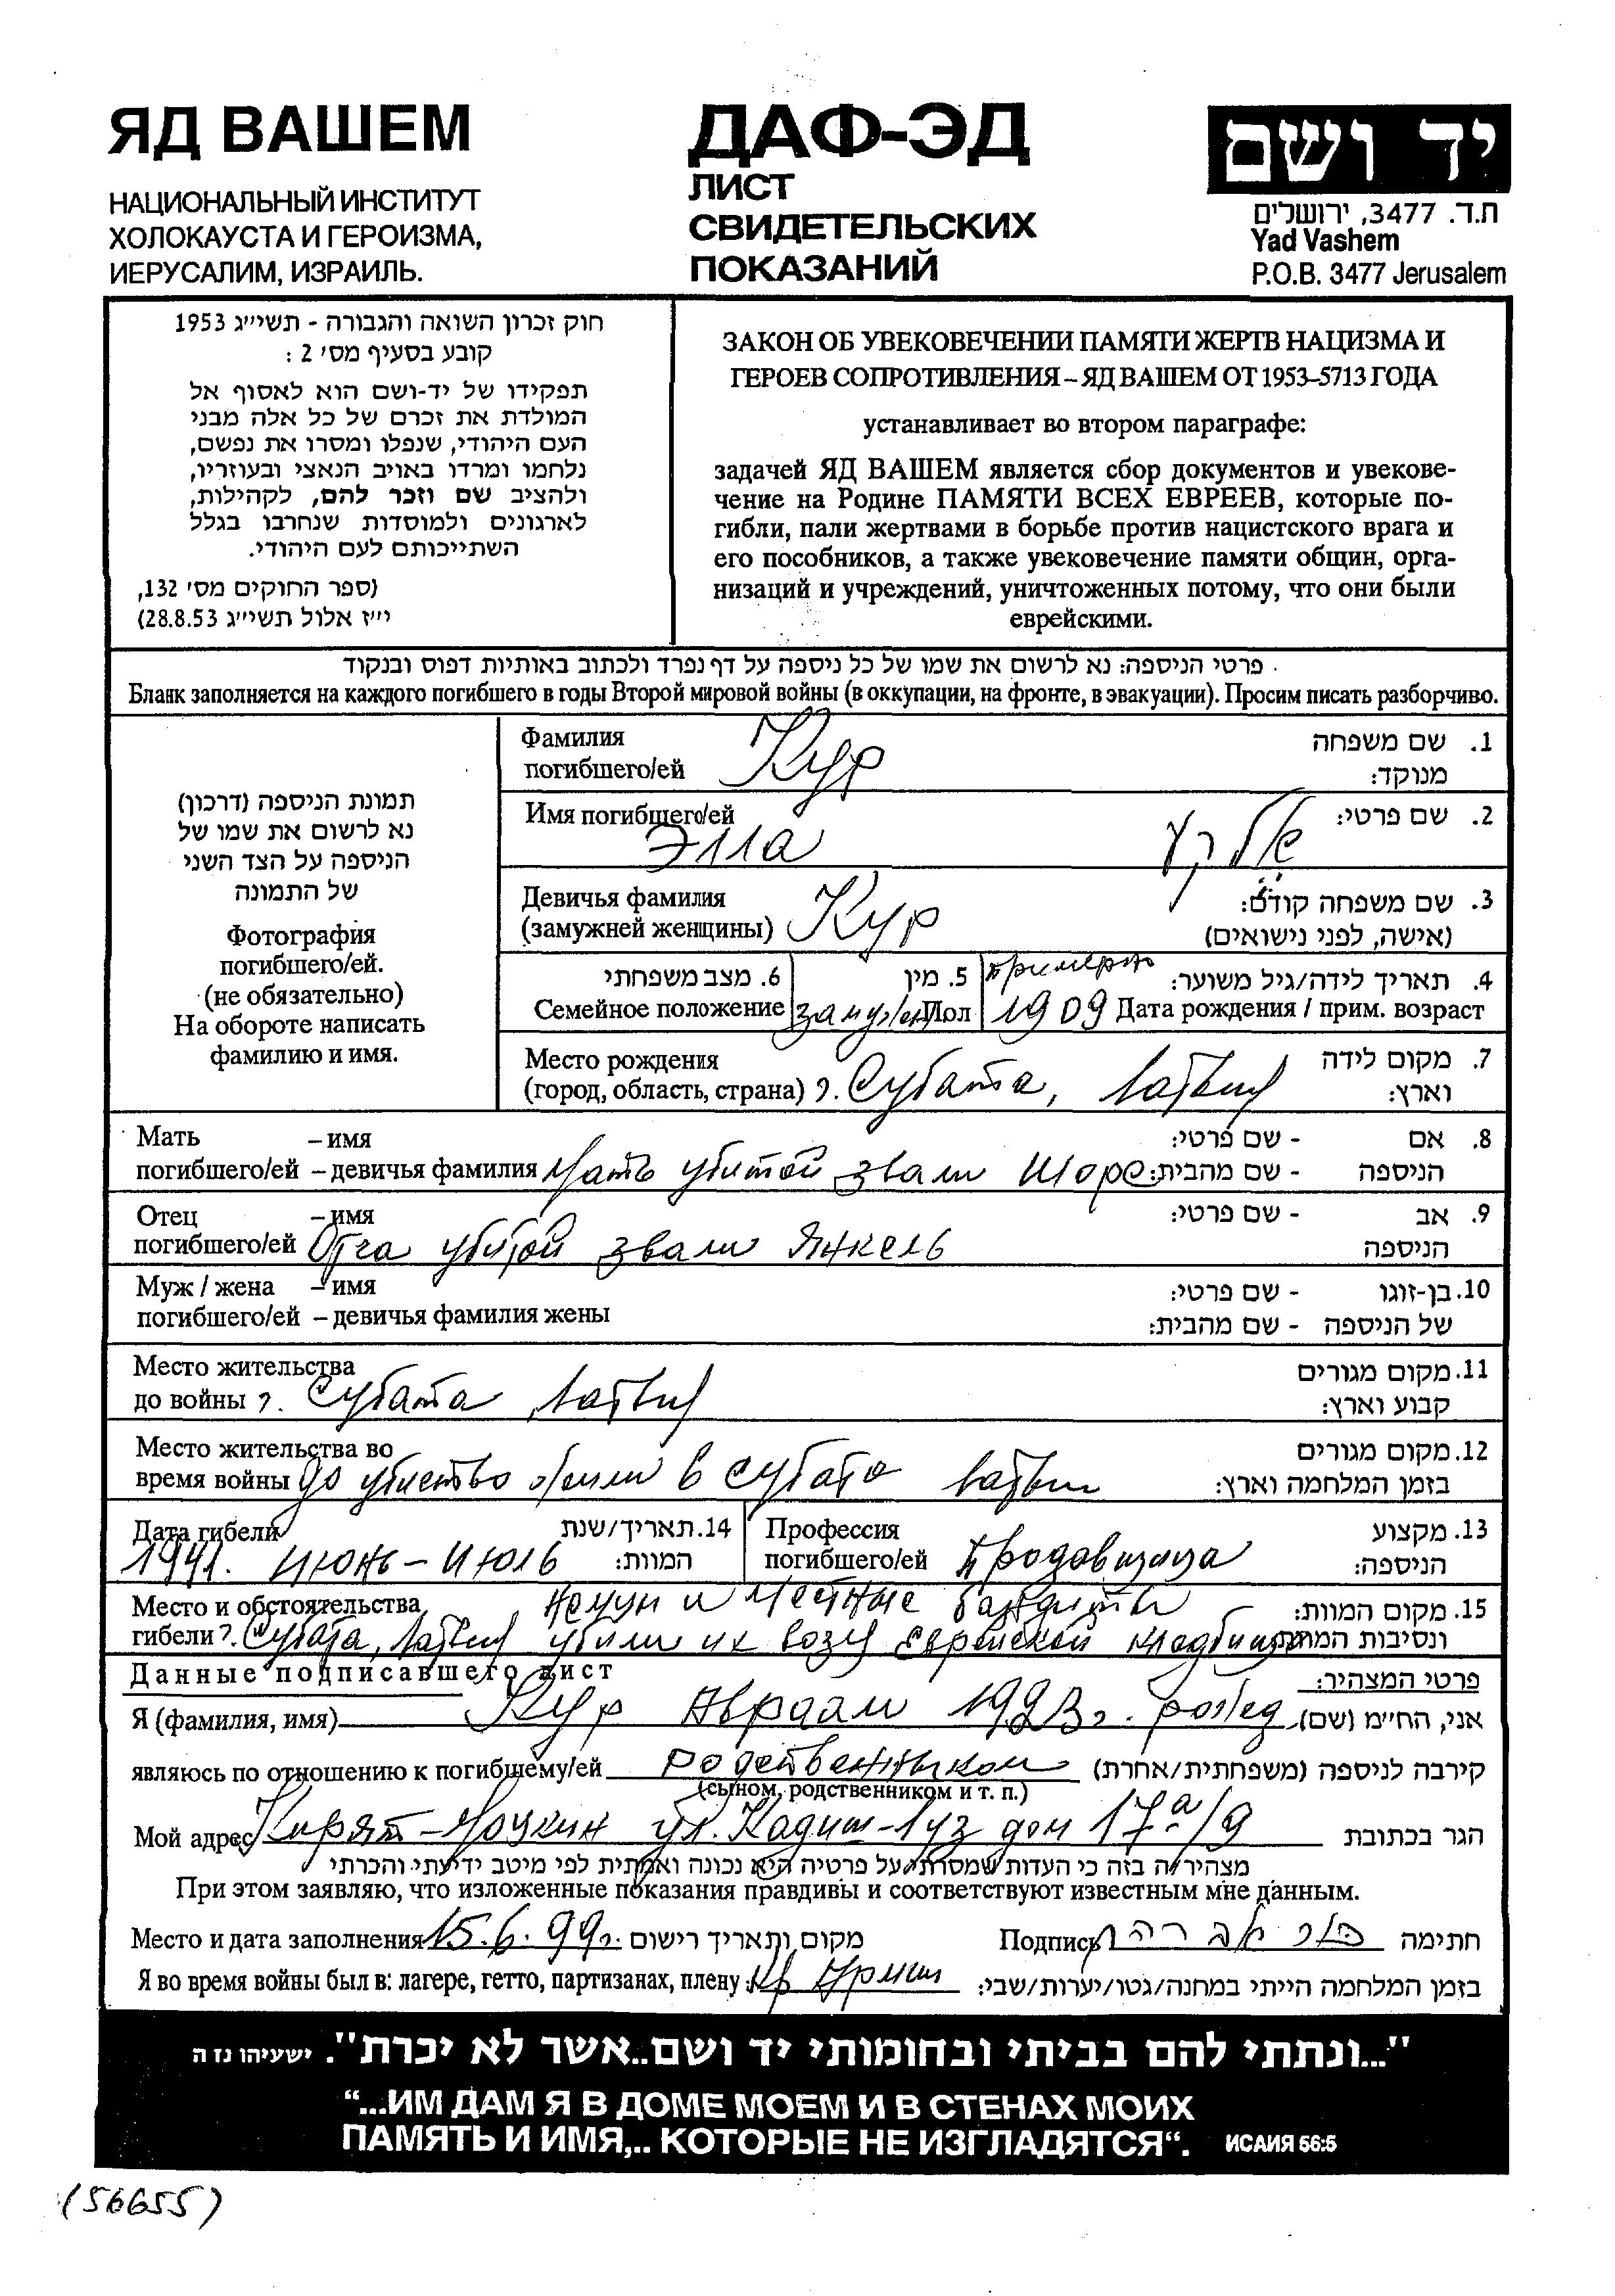 ЯД ВАШЕМ
НАЦИОНАЛЬНЫЙ ИНСТИТУТ
ХОЛОКАУСТА И ГЕРОИЗМА,
ИЕРУСАЛИМ, ИЗРАИЛЬ.
ДАФ-ЭД
ЛИСТ
СВИДЕТЕЛЬСКИХ
ПОКАЗАНИЙ
יד ושם
ת.ד. 3477, ירושלים
Yad Vashem
P.O.B. 3477 Jerusalem
חוק זכרון השואה והגבורה - תשי״ג 1953
קובע בסעיף מס׳ 2 :
תפקידו של יד-ושם הוא לאסוף אל
המולדת את זכרם של כל אלה מבני
העם היהודי, שנפלו ומסרו את נפשם,
נלחמו ומרדו באויב הנאצי ובעוזריו,
ולהציב שם וזכר להם, לקהילות,
לארגונים ולמוסדות שנחרבו בגלל
השתייכותם לעם היהודי.
(ספר החוקים מס׳ 132,
י״ז אלול תשי״ג 28.8.53)
ЗАКОН ОБ УВЕКОВЕЧЕНИИ ПАМЯТИ ЖЕРТВ НАЦИЗМА И
ГЕРОЕВ СОПРОТИВЛЕНИЯ – ЯД ВАШЕМ ОТ 1953–5713 ГОДА
устанавливает во втором параграфе:
задачей ЯД ВАШЕМ является сбор документов и увекове-
чение на Родине ПАМЯТИ ВСЕХ ЕВРЕЕВ, которые по-
гибли, пали жертвами в борьбе против нацистского врага и
его пособников, а также увековечение памяти общин, орга-
низаций и учреждений, уничтоженных потому, что они были
еврейскими.
פרטי הניספה: נא לרשום את שמו של כל ניספה על דף נפרד ולכתוב באותיות דפוס ובנקוד
Бланк заполняется на каждого погибшего в годы Второй мировой войны (в оккупации, на фронте, в эвакуации). Просим писать разборчиво.
תמונת הניספה (דרכון)
נא לרשום את שמו של
הניספה על הצד השני
של התמונה
Фотография
погибшего/ей.
(не обязательно)
На обороте написать
фамилию и имя.
Фамилия
погибшего/ей Кур
1. שם משפחה
מנוקד:
Имя погибшего/ей
Элла
2. שם פרטי:
Девичья фамилия
(замужней женщины) Кур
3. שם משפחה קודם:
(אישה, לפני נישואים)
6. מצב משפחתי
Семейное положение
5. מין
Пол
Примерно
1909
4. תאריך לידה/גיל משוער:
Дата рождения / прим. возраст
Место рождения
(город, область, страна) г. Субата, Латвия
7. מקום לידה
וארץ:
Мать – имя
погибшего/ей – девичья фамилия Мать убитой звали Шоре
8. אם - שם פרטי:
הניספה - שם מהבית:
Отец – имя
погибшего/ей Отца убитой звали Янкель
9. אב - שם פרטי:
הניספה
Муж / жена – имя
погибшего/ей – девичья фамилия жены
10. בן-זוגו - שם פרטי:
של הניספה - שם מהבית:
Место жительства
до войны г. Субата, Латвия
11. מקום מגורים
קבוע וארץ:
Место жительства во
время войны До убиство были в Субата Латвии
12. מקום מגורים
בזמן המלחמה וארץ:
Дата гибели
1941. Июнь – Июль
14. תאריך/שנת
המוות:
Профессия
погибшего/ей Продавщица
13. מקצוע
הניספה:
Место и обстоятельства Немцы и местные бандиты
гибели г. Субата, Латвия убили их возу еврейской кладбища
15. מקום המוות:
ונסיבות המוות:
Данные подписавшего лист
פרטי המצהיר:
Я (фамилия, имя) Кур Авраам 1923 г. рожд
אני, החי״מ (שם)
являюсь по отношению к погибшему/ей родственником
(сыном, родственником и т. п.)
קירבה לניספה (משפחתית/אחרת)
Мой адрес Кирят-Моцкин ул. Кадиш-Луз дом 17а/9
הגר בכתובת
מצהיר/ה בזה כי העדות שמסרתי על פרטיה היא נכונה ואמתית לפי מיטב ידיעתי והכרתי
При этом заявляю, что изложенные показания правдивы и соответствуют известным мне данным.
Место и дата заполнения 15.6.99г. מקום ותאריך רישום
Подпись
חתימה
Я во время войны был в: лагере, гетто, партизанах, плену: Кр Армии
בזמן המלחמה הייתי במחנה/גטו/יערות/שבי:
"...ונתתי להם בביתי ובחומותי יד ושם..אשר לא יכרת". ישעיהו נז ה
“...ИМ ДАМ Я В ДОМЕ МОЕМ И В СТЕНАХ МОИХ
ПАМЯТЬ И ИМЯ,.. КОТОРЫЕ НЕ ИЗГЛАДЯТСЯ“. ИСАИЯ 56:5
(56655)